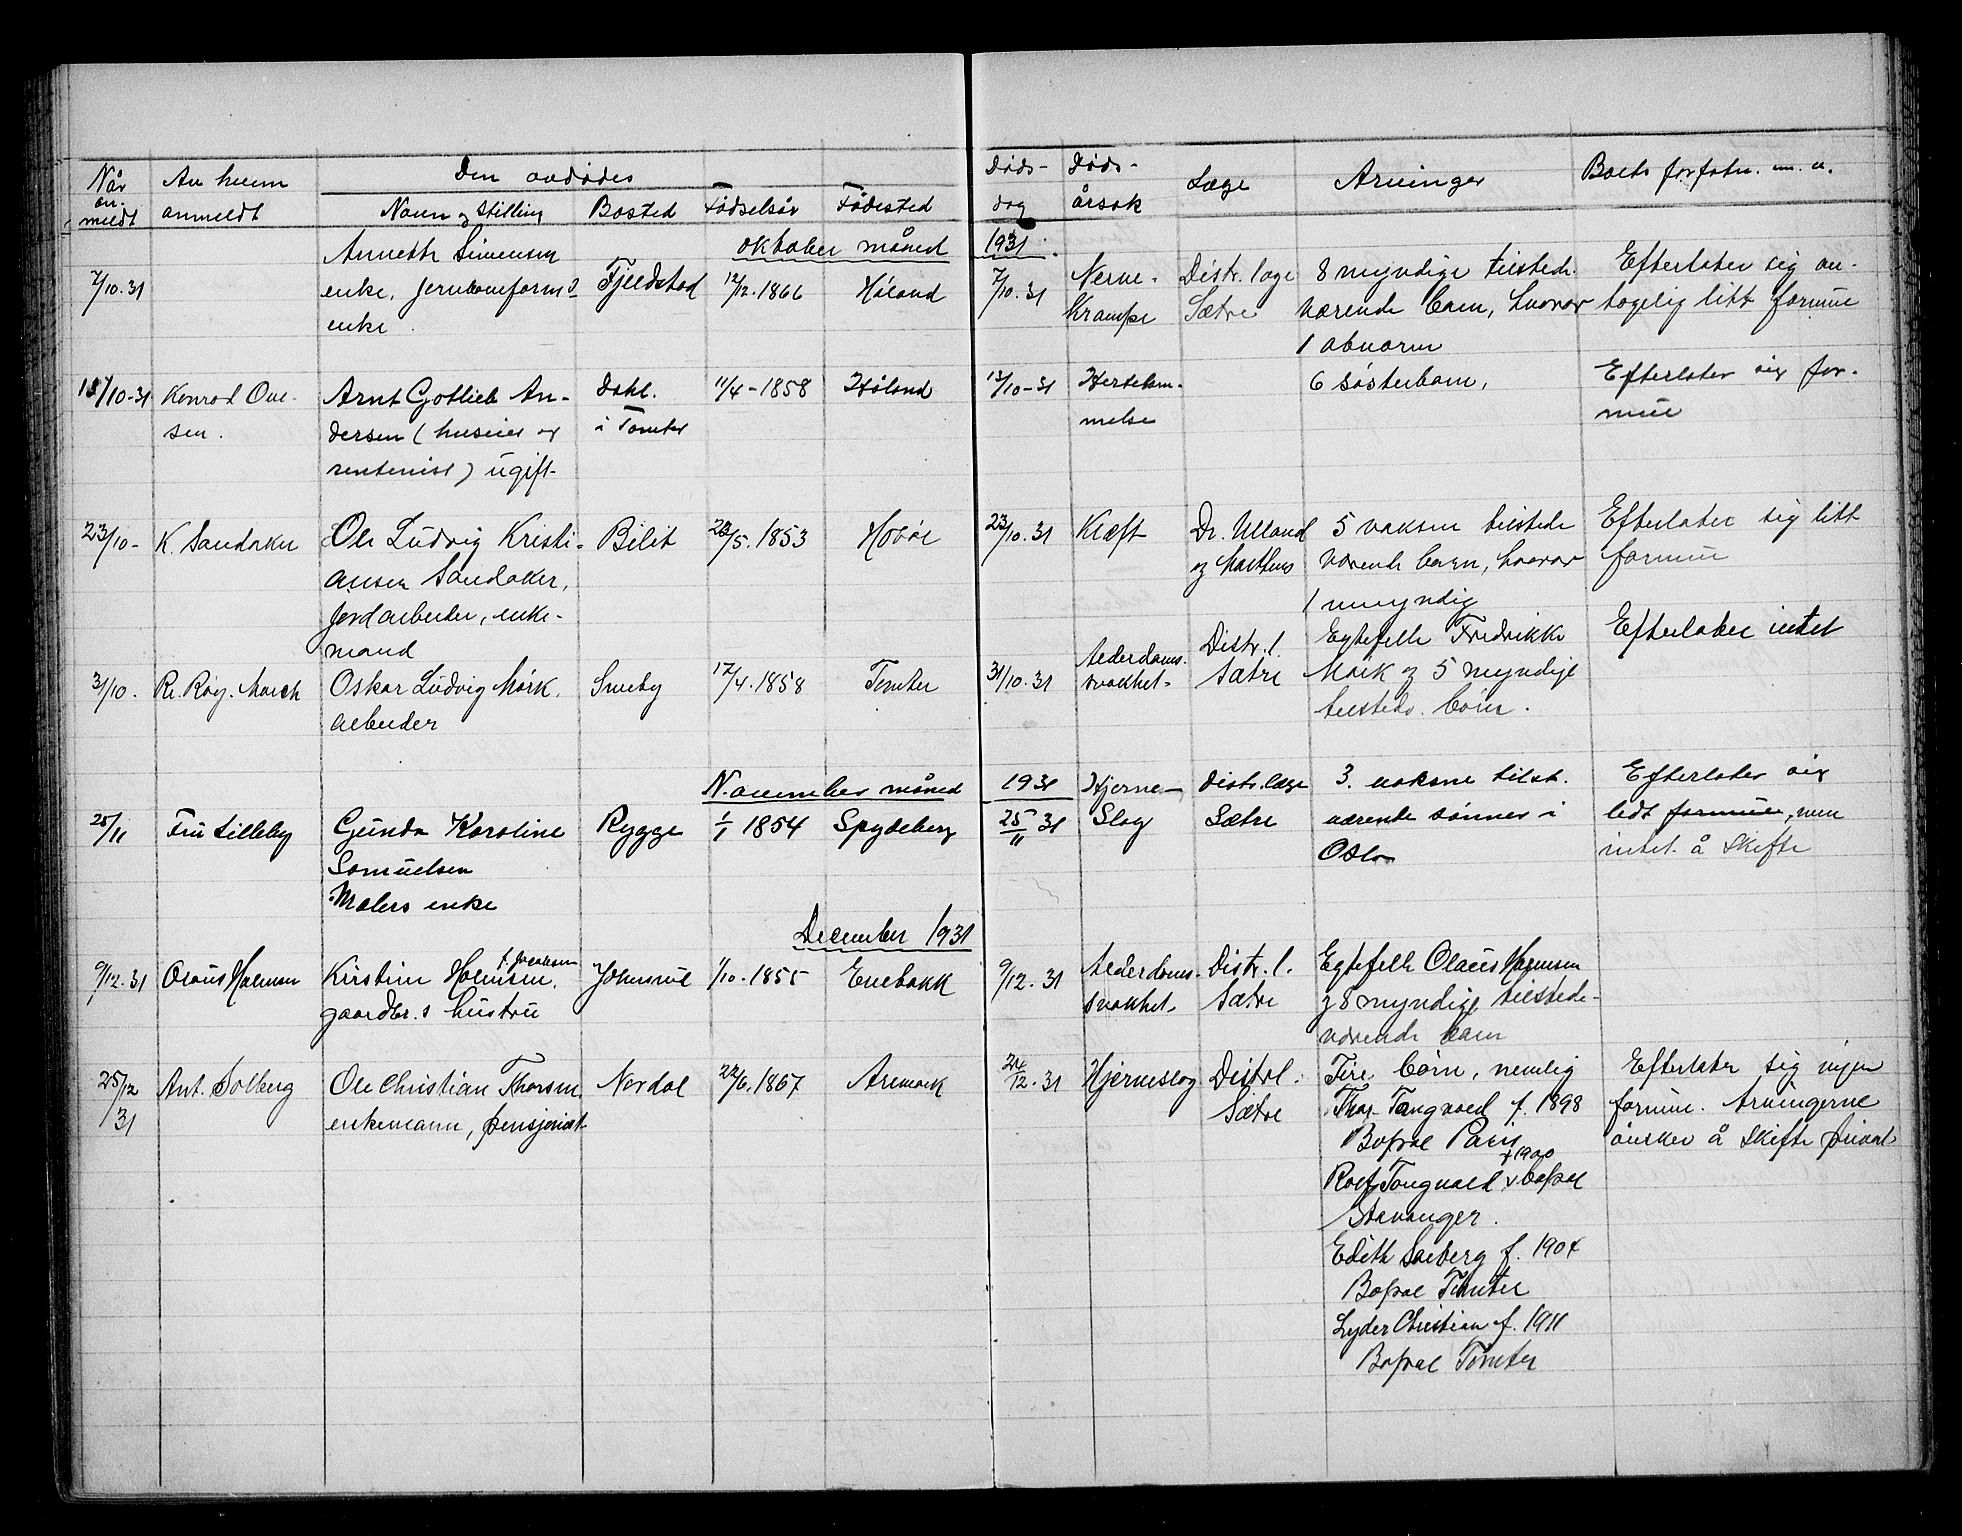 Når an- meldt
Av hvem anmeldt
Den avdødes
Navn og Stilling
Bosted
Fødselsår
Fødested
Døds- dag
Døds- årsak
Læge
Arvinger
Boets forfatn. m. v.
oktober måned 1931.
7/10.31
Annette Simensen
enke, jernbaneform.s
enke.
Fjeldstad
12/12.1866
Høland
7/10.31
Nerve-
Krampe
Distr. læge
Sætre
8 myndige tilstede-
værende barn, hvorav
1 abnorm
Efterlater sig an-
tagelig litt formue
15/10-31
Konrad Ove-
sen.
Arnt Gotlieb An-
dersen (huseier og
rentenist) ugift-
Dahl.
i Tomter
11/4-1858
Høland
13/10-31
Hertelam-
melse
6 søsterbarn,
Efterlater sig for-
mue
23/10-
K. Sandaker
Ole Ludvig Kristi-
ansen Sandaker,
Jordarbeider, enke-
mand
Bilit
23/5.1853
Hobøl
23/10.31
Kræft
Dr. Ulland
og
5 voksne tilstede
værende barn, hvorav
1 umyndig
Efterlater sig litt
formue
31/10.
Mørch
Oskar Ludvig Mørk.
arbeider
Smeby
17/4.1858
Tomter
31/10.31
Alderdoms-
svakhet-
Distr. l.
Sætre
Egtefelle Fredrikke
Mørk og 5 myndige
tilstedv. børn.
Efterlater intet
November måned 1931
25/11
Fru Lilleby
Gunda Karoline
Samuelsen
Malers enke
Rygge
1/1 1854
Spydeberg
25/11 31
Hjerne-
Slag
Distr. læge
Sætre
3. voksne tilst.
værende sønner i
Oslo
Efterlater sig
lidt formue, men
intet å Skifte
December 1931
9/12.31
Olaus Holmsen
f. Jacobsen
Kirstine Holmsen,
gaardbr.s hustru
Johnsrud
1/10.1855
Enebakk
9/12.31
Alderdoms-
svakhet-
Distr. l.
Sætre
Egtefelle Olaus Holmsen
og 8 myndige tilstede-
værende barn
25/12 31
Ant. Solberg
Ole Christian Thorsen
enkemann, pensjonist
Nordal
22/6.1867
Aremark
24/12.31
Hjerneslag
Dist. l.
Sætre
Fire børn, nemlig
Thor Tangvald f. 1898
Bopæl Paris
f 1900
Rolf Tangvald, bopæl
Stavanger.
Edith Solberg f. 1904
Bopæl Tomter
Lyder Christian f. 1911
Bopæl Tomter
Efterlater sig ingen
formue. Arvingerne
ønsker å Skifte privat